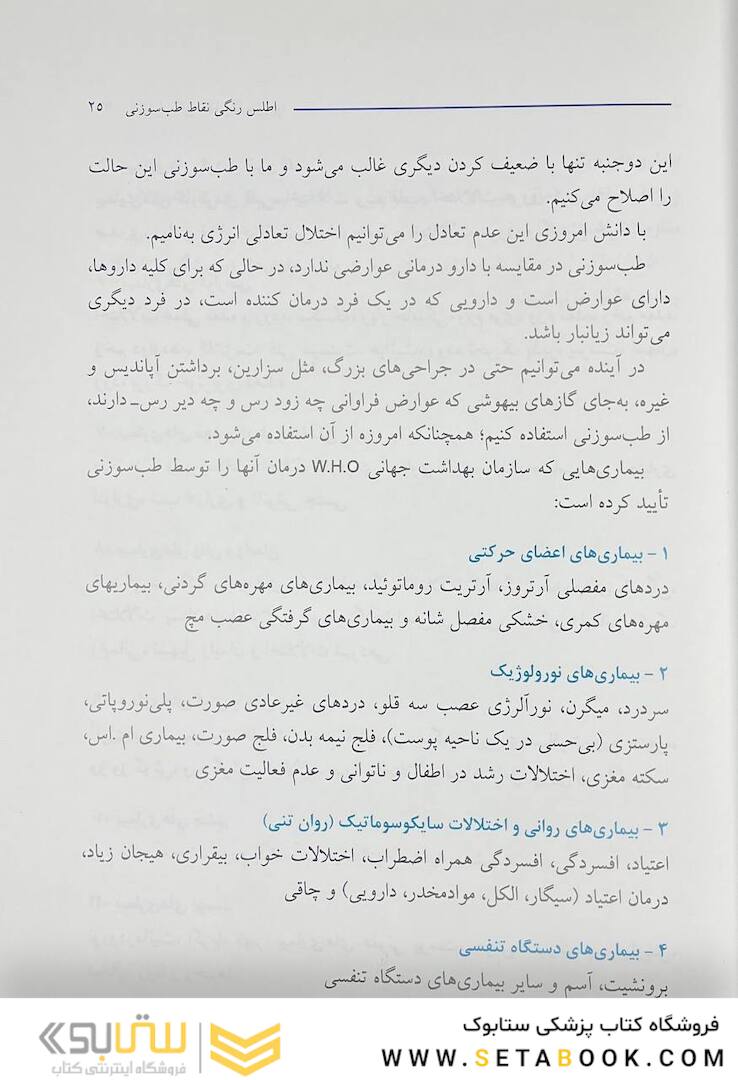 اطلس رنگی نقاط طب‌سوزنی ۲۵
این دوجنبه تنها با ضعیف کردن دیگری غالب می‌شود و ما با طب‌سوزنی این حالت
را اصلاح می‌کنیم.
با دانش امروزی این عدم تعادل را می‌توانیم اختلال تعادلی انرژی به‌نامیم.
طب‌سوزنی در مقایسه با دارو درمانی عوارضی ندارد، در حالی که برای کلیه داروها،
دارای عوارض است و دارویی که در یک فرد درمان کننده است، در فرد دیگری
می‌تواند زیانبار باشد.
در آینده می‌توانیم حتی در جراحی‌های بزرگ، مثل سزارین، برداشتن آپاندیس و
غیره، به‌جای گازهای بیهوشی که عوارض فراوانی چه زود رس و چه دیر رس_ دارند،
از طب‌سوزنی استفاده کنیم؛ همچنانکه امروزه از آن استفاده می‌شود.
بیماری‌هایی که سازمان بهداشت جهانی W.H.O درمان آنها را توسط طب‌سوزنی
تأیید کرده است:
۱ - بیماری‌های اعضای حرکتی
دردهای مفصلی آرتروز، آرتریت روماتوئید، بیماری‌های مهره‌های گردنی، بیماریهای
مهره‌های کمری، خشکی مفصل شانه و بیماری‌های گرفتگی عصب مچ
۲ - بیماری‌های نورولوژیک
سردرد، میگرن، نورآلرژی عصب سه قلو، دردهای غیرعادی صورت، پلی‌نوروپاتی،
پارستزی (بی‌حسی در یک ناحیه پوست)، فلج نیمه بدن، فلج صورت، بیماری ام .اس،
سکته مغزی، اختلالات رشد در اطفال و ناتوانی و عدم فعالیت مغزی
۳ - بیماری‌های روانی و اختلالات سایکوسوماتیک (روان تنی)
اعتیاد، افسردگی، افسردگی همراه اضطراب، اختلالات خواب، بیقراری، هیجان زیاد،
درمان اعتیاد (سیگار، الکل، موادمخدر، دارویی) و چاقی
۴ - بیماری‌های دستگاه تنفسی
برونشیت، آسم و سایر بیماری‌های دستگاه تنفسی
فروشگاه کتاب پزشکی ستابوک
WWW.SETABOOK.COM
ستابوک
فروشگاه اینترنتی کتاب